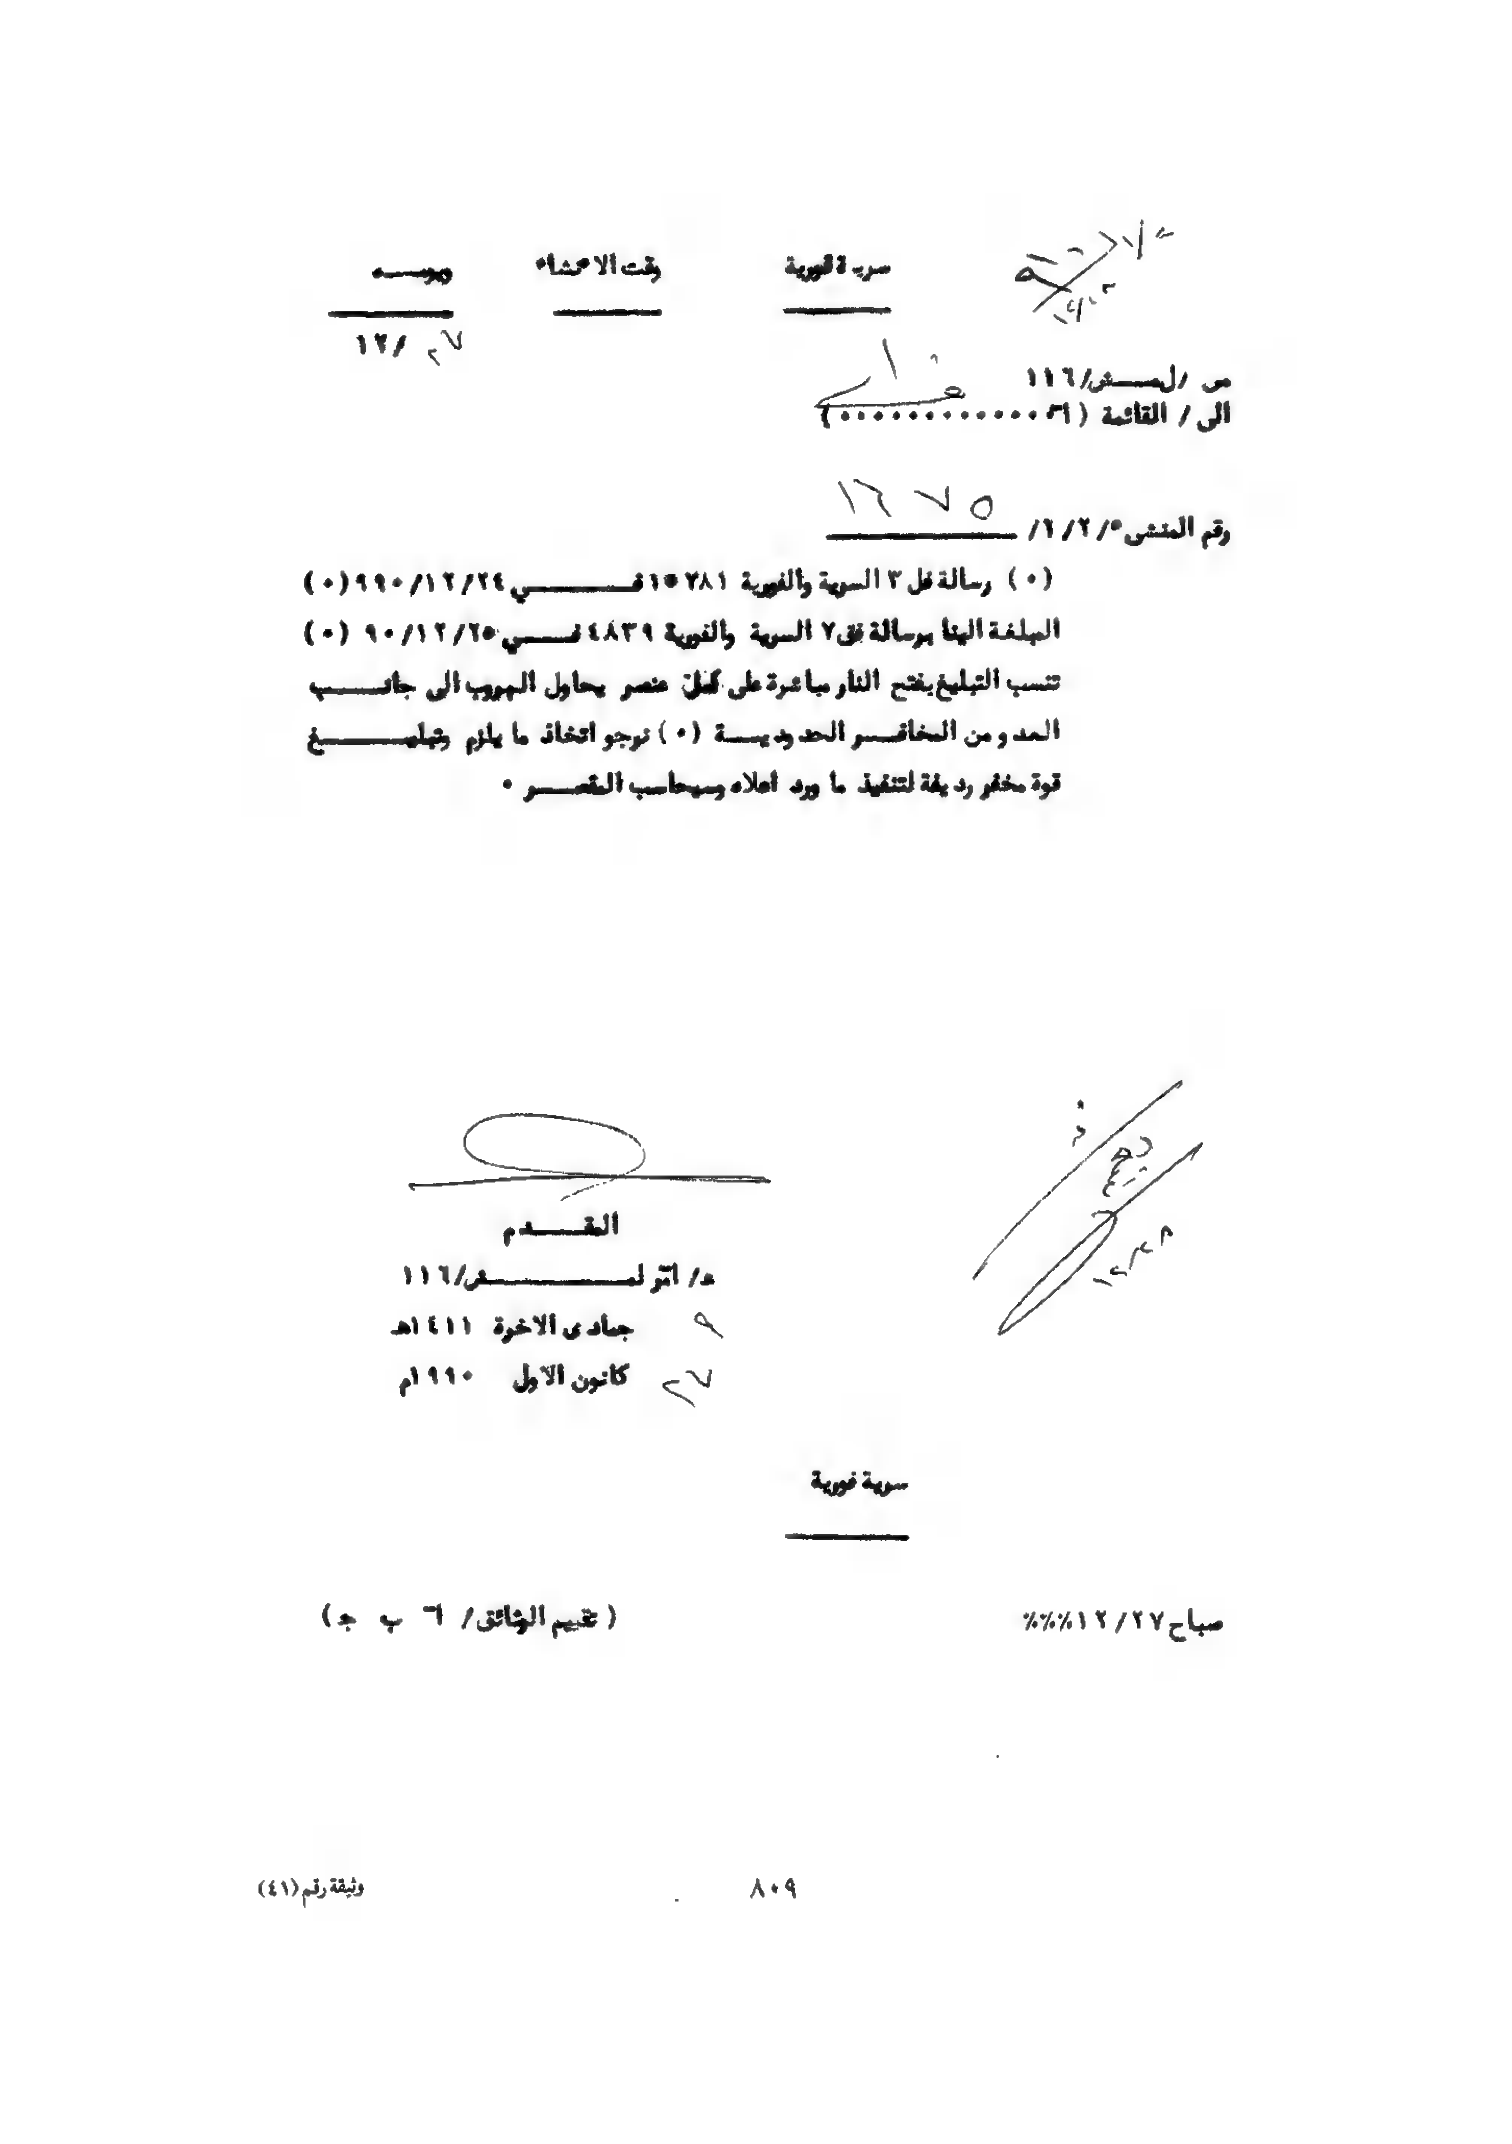 سرية فورية
وقت الانشاء
ويومــه
٢٧ /١٢
من /لمــش/١١٦
الى / القائمة (آ ٠٠٠٠٠٠٠٠٠٠٠٠)
رقم المنشىء/٢/١/ ١٦٧٥
(٠) رسالة فل ٣ السرية والفورية ١٥٢٨١ فــــي ٩٩٠/١٢/٢٤ (٠)
المبلغة الينا برسالة فق٧ السرية والفورية ٤٨٣٩ فــــي ٩٠/١٢/٢٥ (٠)
تنسب التبليغ بفتح النار مباشرة على كل عنصر يحاول الهروب الى جانــــب
العدو من المخافــر الحدوديــة (٠) نرجو اتخاذ ما يلزم وتبليــــغ
قوة مخفر رديفة لتنفيذ ما ورد اعلاه وسيحاسب المقصــر ٠
المقــدم
د/ آمر لمــــش/١١٦
٩ جمادى الاخرة ١٤١١هـ
٢٧ كانون الاول ١٩٩٠م
سرية فورية
صباح ١٢/٢٧٪٪٪
( تقييم الوثائق/ آ ب ج )
٨٠٩
وثيقة رقم (٤١)